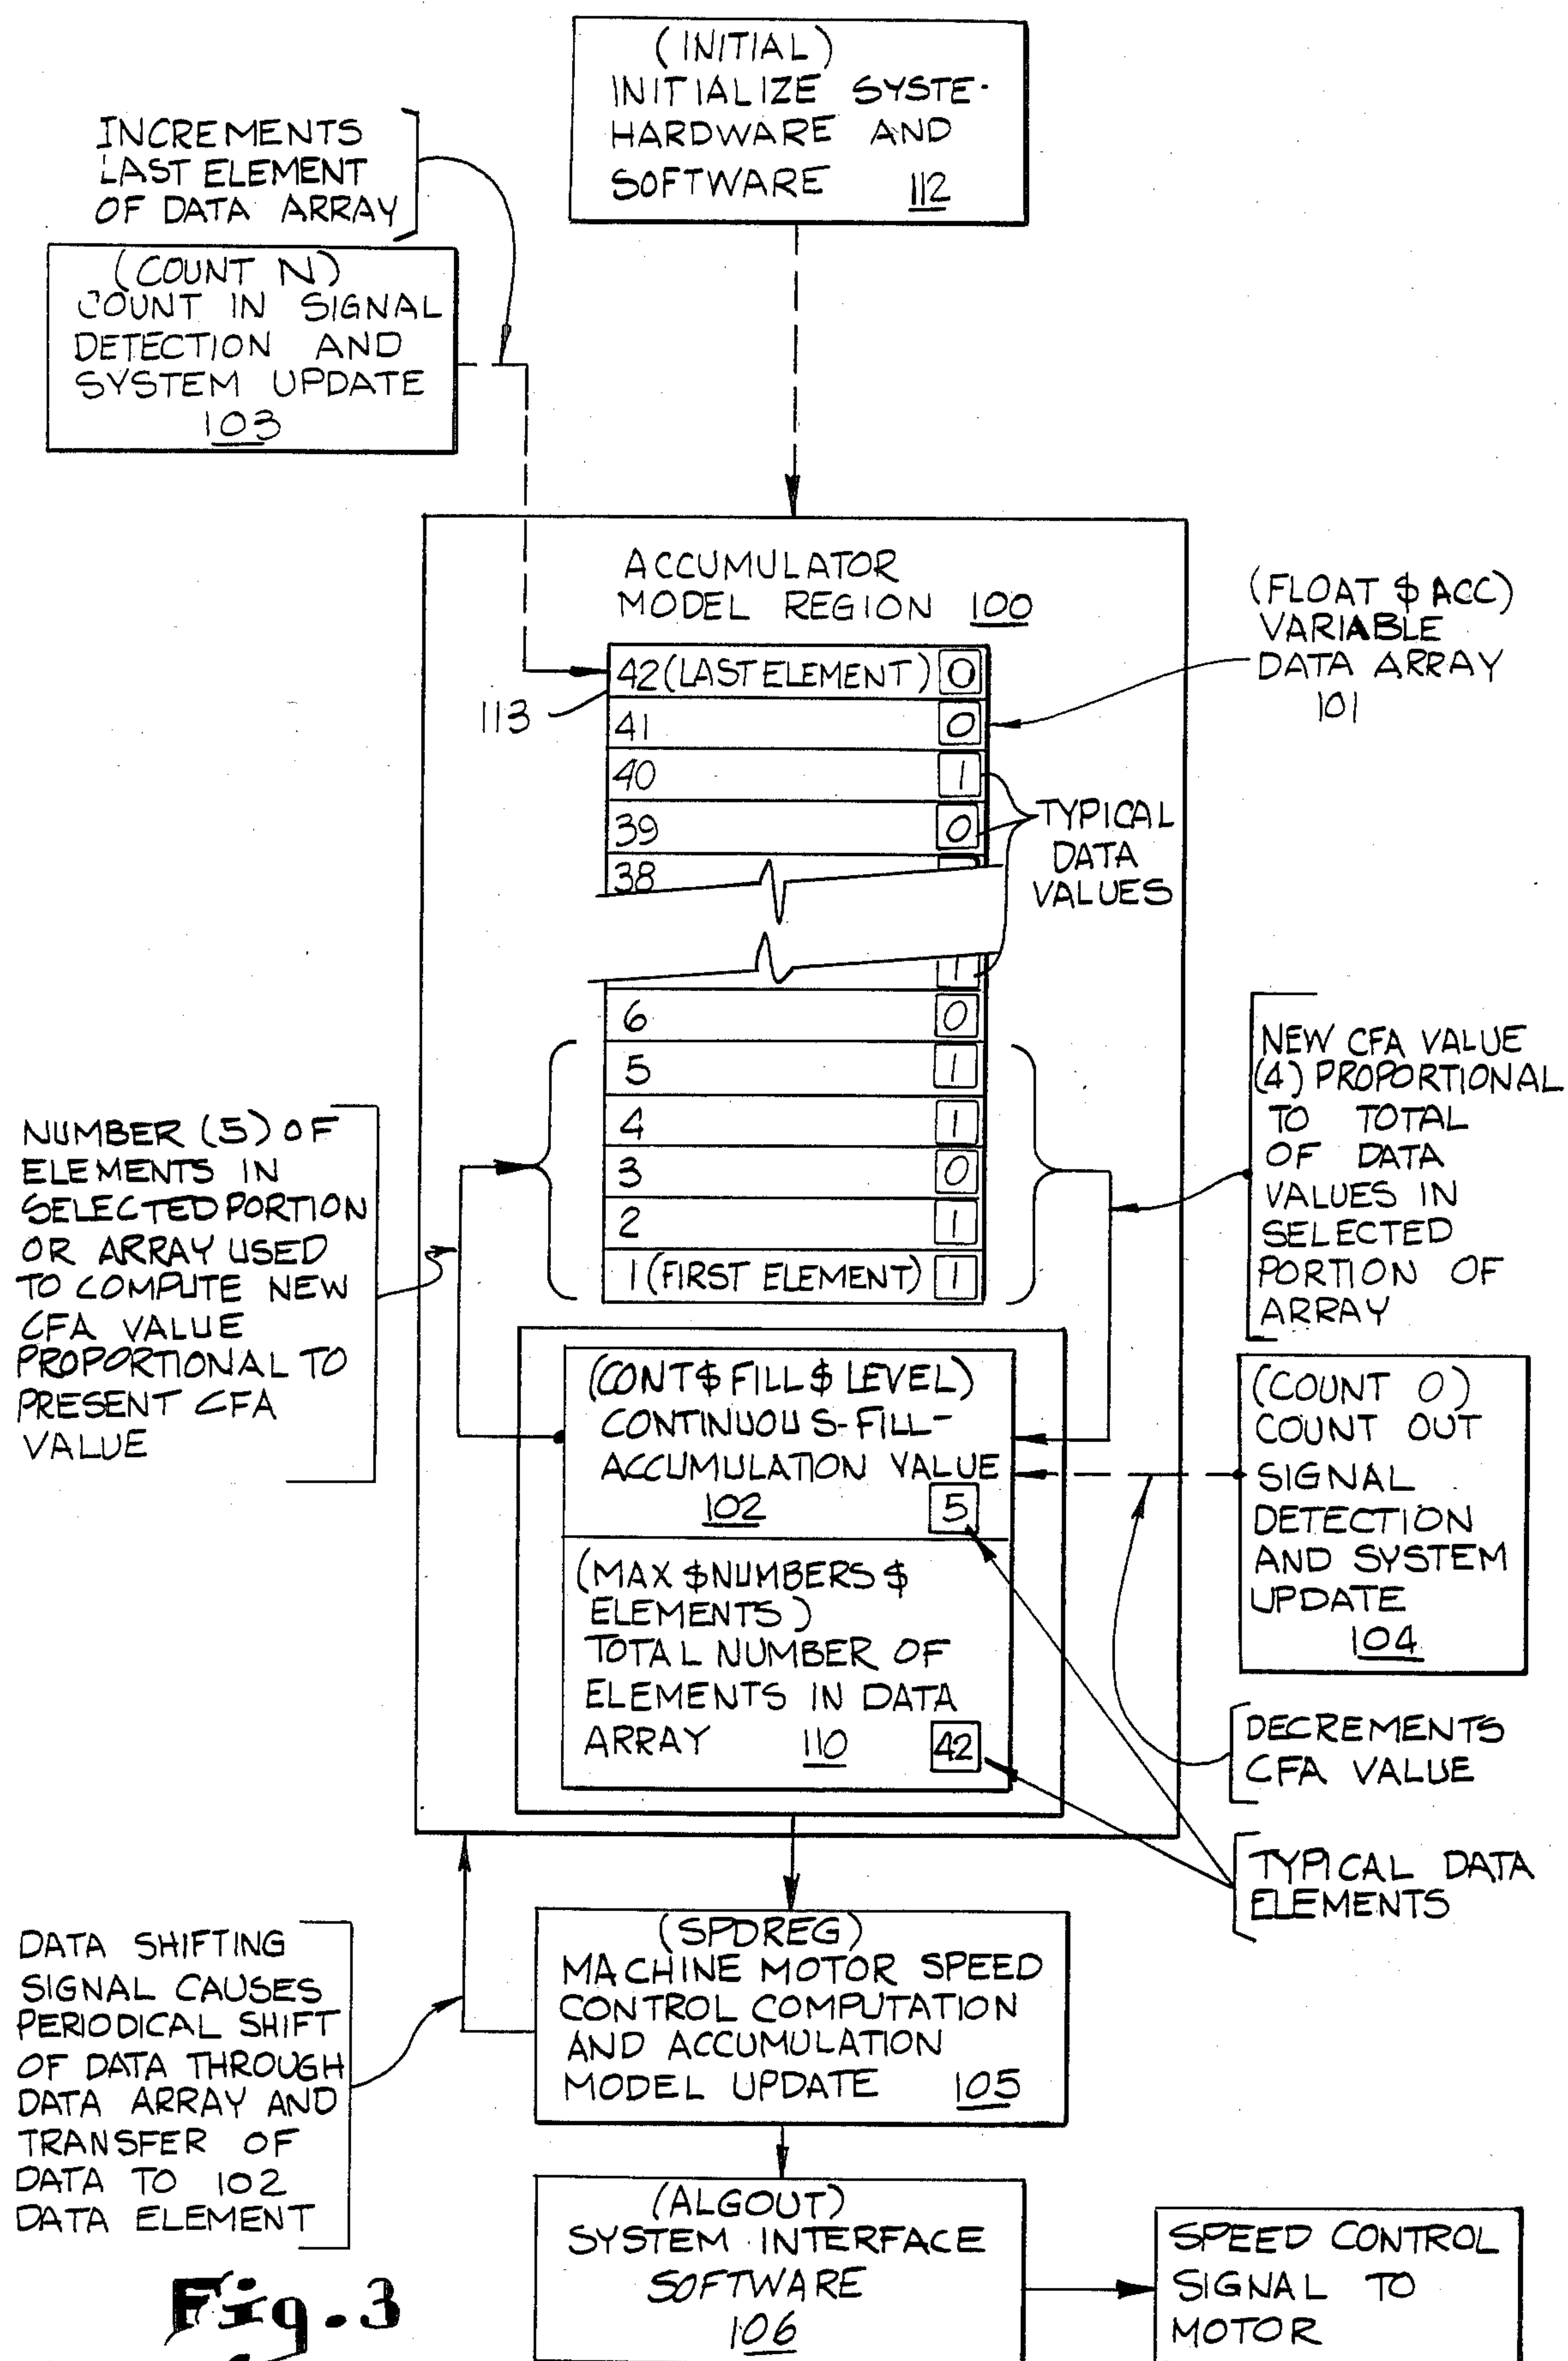 (INITIAL)
INITIALIZE SYSTE-
HARDWARE AND
SOFTWARE 112
INCREMENTS
LAST ELEMENT
OF DATA ARRAY
(COUNT N)
COUNT IN SIGNAL
DETECTION AND
SYSTEM UPDATE
103
ACCUMULATOR
MODEL REGION 100
(FLOAT $ ACC)
VARIABLE
DATA ARRAY
101
42 (LAST ELEMENT) 0
113
41 0
40 1
39 0
38
TYPICAL
DATA
VALUES
1
6 0
5 1
4 1
3 0
2 1
1 (FIRST ELEMENT) 1
NUMBER (5) OF
ELEMENTS IN
SELECTED PORTION
OR ARRAY USED
TO COMPUTE NEW
CFA VALUE
PROPORTIONAL TO
PRESENT CFA
VALUE
NEW CFA VALUE
(4) PROPORTIONAL
TO TOTAL
OF DATA
VALUES IN
SELECTED
PORTION OF
ARRAY
(CONT $ FILL $ LEVEL)
CONTINUOUS-FILL-
ACCUMULATION VALUE
102 5
(MAX $NUMBERS $
ELEMENTS)
TOTAL NUMBER OF
ELEMENTS IN DATA
ARRAY 110 42
(COUNT O)
COUNT OUT
SIGNAL
DETECTION
AND SYSTEM
UPDATE
104
DECREMENTS
CFA VALUE
TYPICAL DATA
ELEMENTS
DATA SHIFTING
SIGNAL CAUSES
PERIODICAL SHIFT
OF DATA THROUGH
DATA ARRAY AND
TRANSFER OF
DATA TO 102
DATA ELEMENT
(SPDREG)
MACHINE MOTOR SPEED
CONTROL COMPUTATION
AND ACCUMULATION
MODEL UPDATE 105
(ALGOUT)
SYSTEM INTERFACE
SOFTWARE
106
SPEED CONTROL
SIGNAL TO
MOTOR
Fig. 3